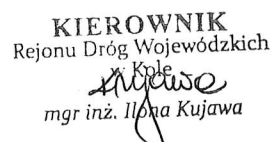 KIEROWNIK
Rejonu Dróg Wojewódzkich
w Kole
mgr inż. Ilona Kujawa